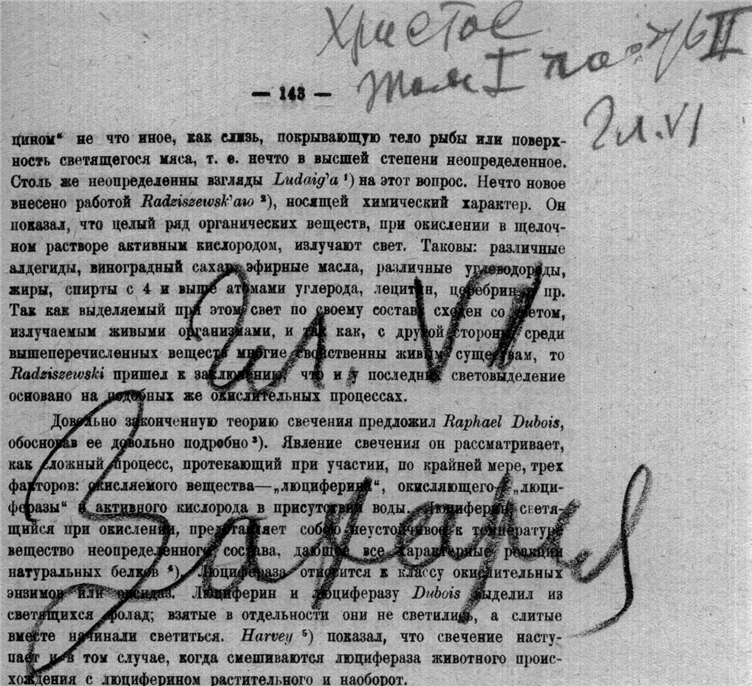 Христос
Том I
II
Гл. VI
— 143 —
цином“ не что иное, как слизь, покрывающую тело рыбы или поверх-
ность светящегося мяса, т. е. нечто в высшей степени неопределенное.
Столь же неопределенны взгляды Ludwig'а ¹) на этот вопрос. Нечто новое
внесено работой Radziszewsk'аго ²), носящей химический характер. Он
показал, что целый ряд органических веществ, при окислении в щелоч-
ном растворе активным кислородом, излучают свет. Таковы: различные
алдегиды, виноградный сахар, эфирные масла, различные углеводороды,
жиры, спирты с 4 и выше атомами углерода, лецитин, церебрин и пр.
Так как выделяемый при этом свет по своему составу сходен со светом,
излучаемым живыми организмами, и так как, с другой стороны, среди
вышеперечисленных веществ многие свойственны живым существам, то
Radziszewski пришел к заключению, что и у последних световыделение
основано на подобных же окислительных процессах.
Гл. VI
Довольно законченную теорию свечения предложил Raphael Dubois,
обосновав ее довольно подробно ³). Явление свечения он рассматривает,
как сложный процесс, протекающий при участии, по крайней мере, трех
факторов: окисляемого вещества—„люциферина“, окисляющего—„люци-
феразы“ и активного кислорода в присутствии воды. Люциферин, светя-
щийся при окислении, представляет собою неустойчивое к температуре
вещество неопределенного состава, дающее все характерные реакции
натуральных белков ⁴). Люцифераза относится к классу окислительных
энзимов или оксидаз. Люциферин и люциферазу Dubois выделил из
светящихся фолад; взятые в отдельности они не светились, а слитые
вместе начинали светиться. Harvey ⁵) показал, что свечение насту-
пает и в том случае, когда смешиваются люцифераза животного проис-
хождения с люциферином растительного и наоборот.